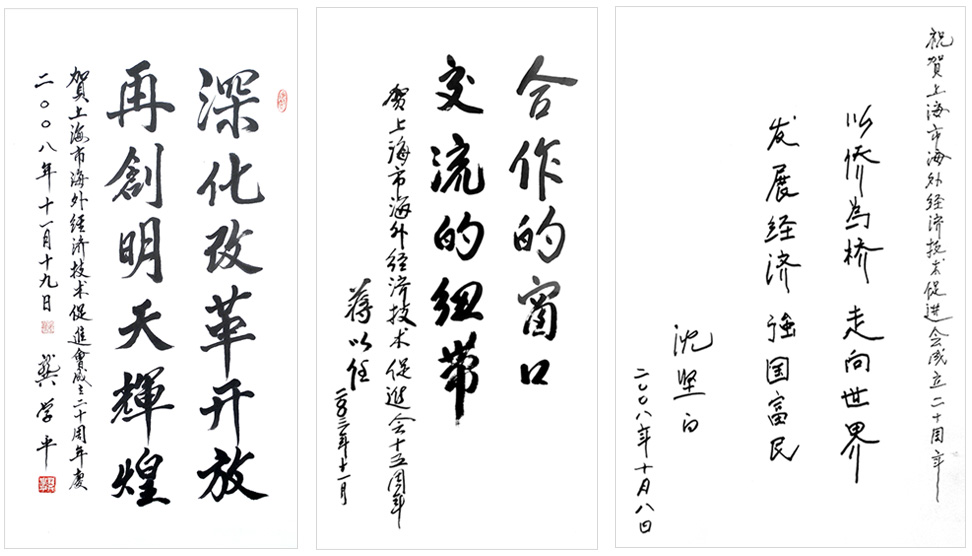 深化改革开放
再創明天輝煌
賀上海市海外经济技术促進會成立二十周年慶
二〇〇八年十一月十九日 龔学平
合作的窗口
交流的纽带
贺上海市海外经济技术促进会十五周年
蒋以任
二〇〇三年十一月
祝賀上海市海外经济技术促进会成立二十周年
以侨为桥 走向世界
发展经济 強国富民
沈坚
二〇〇八年十月八日